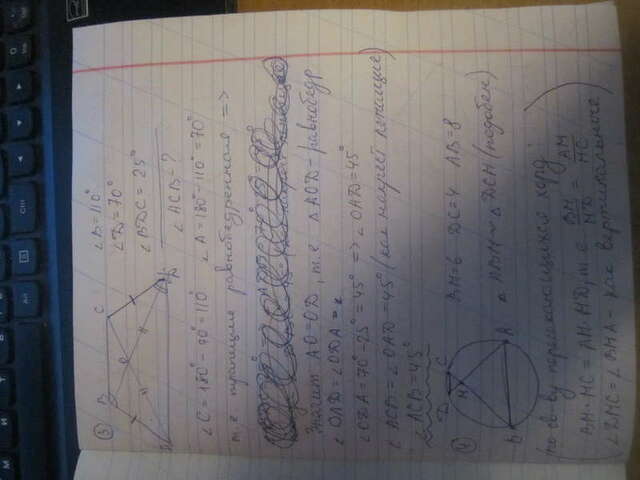 ③
B C
O
A D
∠B = 110°
∠D = 70°
∠BDC = 25°
∠ACB = ?
∠C = 180° - 70° = 110° ∠A = 180° - 110° = 70°
т.е трапеция равнобедренная =>
Значит AO = OD, т.е △AOD - равнобедр
∠OAD = ∠ODA =
∠ODA = 70° - 25° = 45° => ∠OAD = 45°
∠ACB = ∠OAD = 45° (как накрест лежащие)
∠ACB = 45°
④
D C
M
B A
BM = 6 DC = 4 AB = 8
△ABM ~ △DCM (подобен)
(по св-ву пересекающихся хорд
BM · MC = AM · MD, т.е BM/MD = AM/MC
∠DMC = ∠BMA - как вертикальные)
Alt
Ctrl